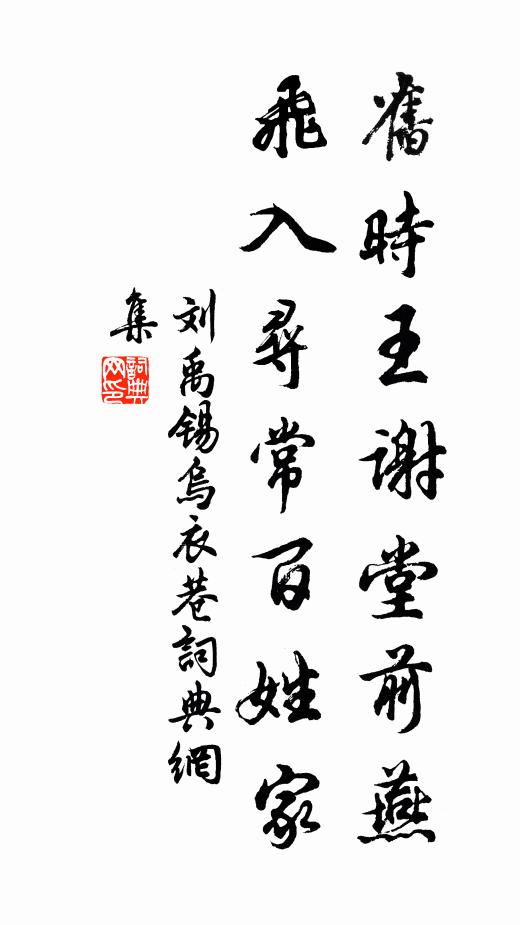 舊時王謝堂前燕
飛入尋常百姓家
刘禹锡烏衣巷詞典網
集
詞典網印